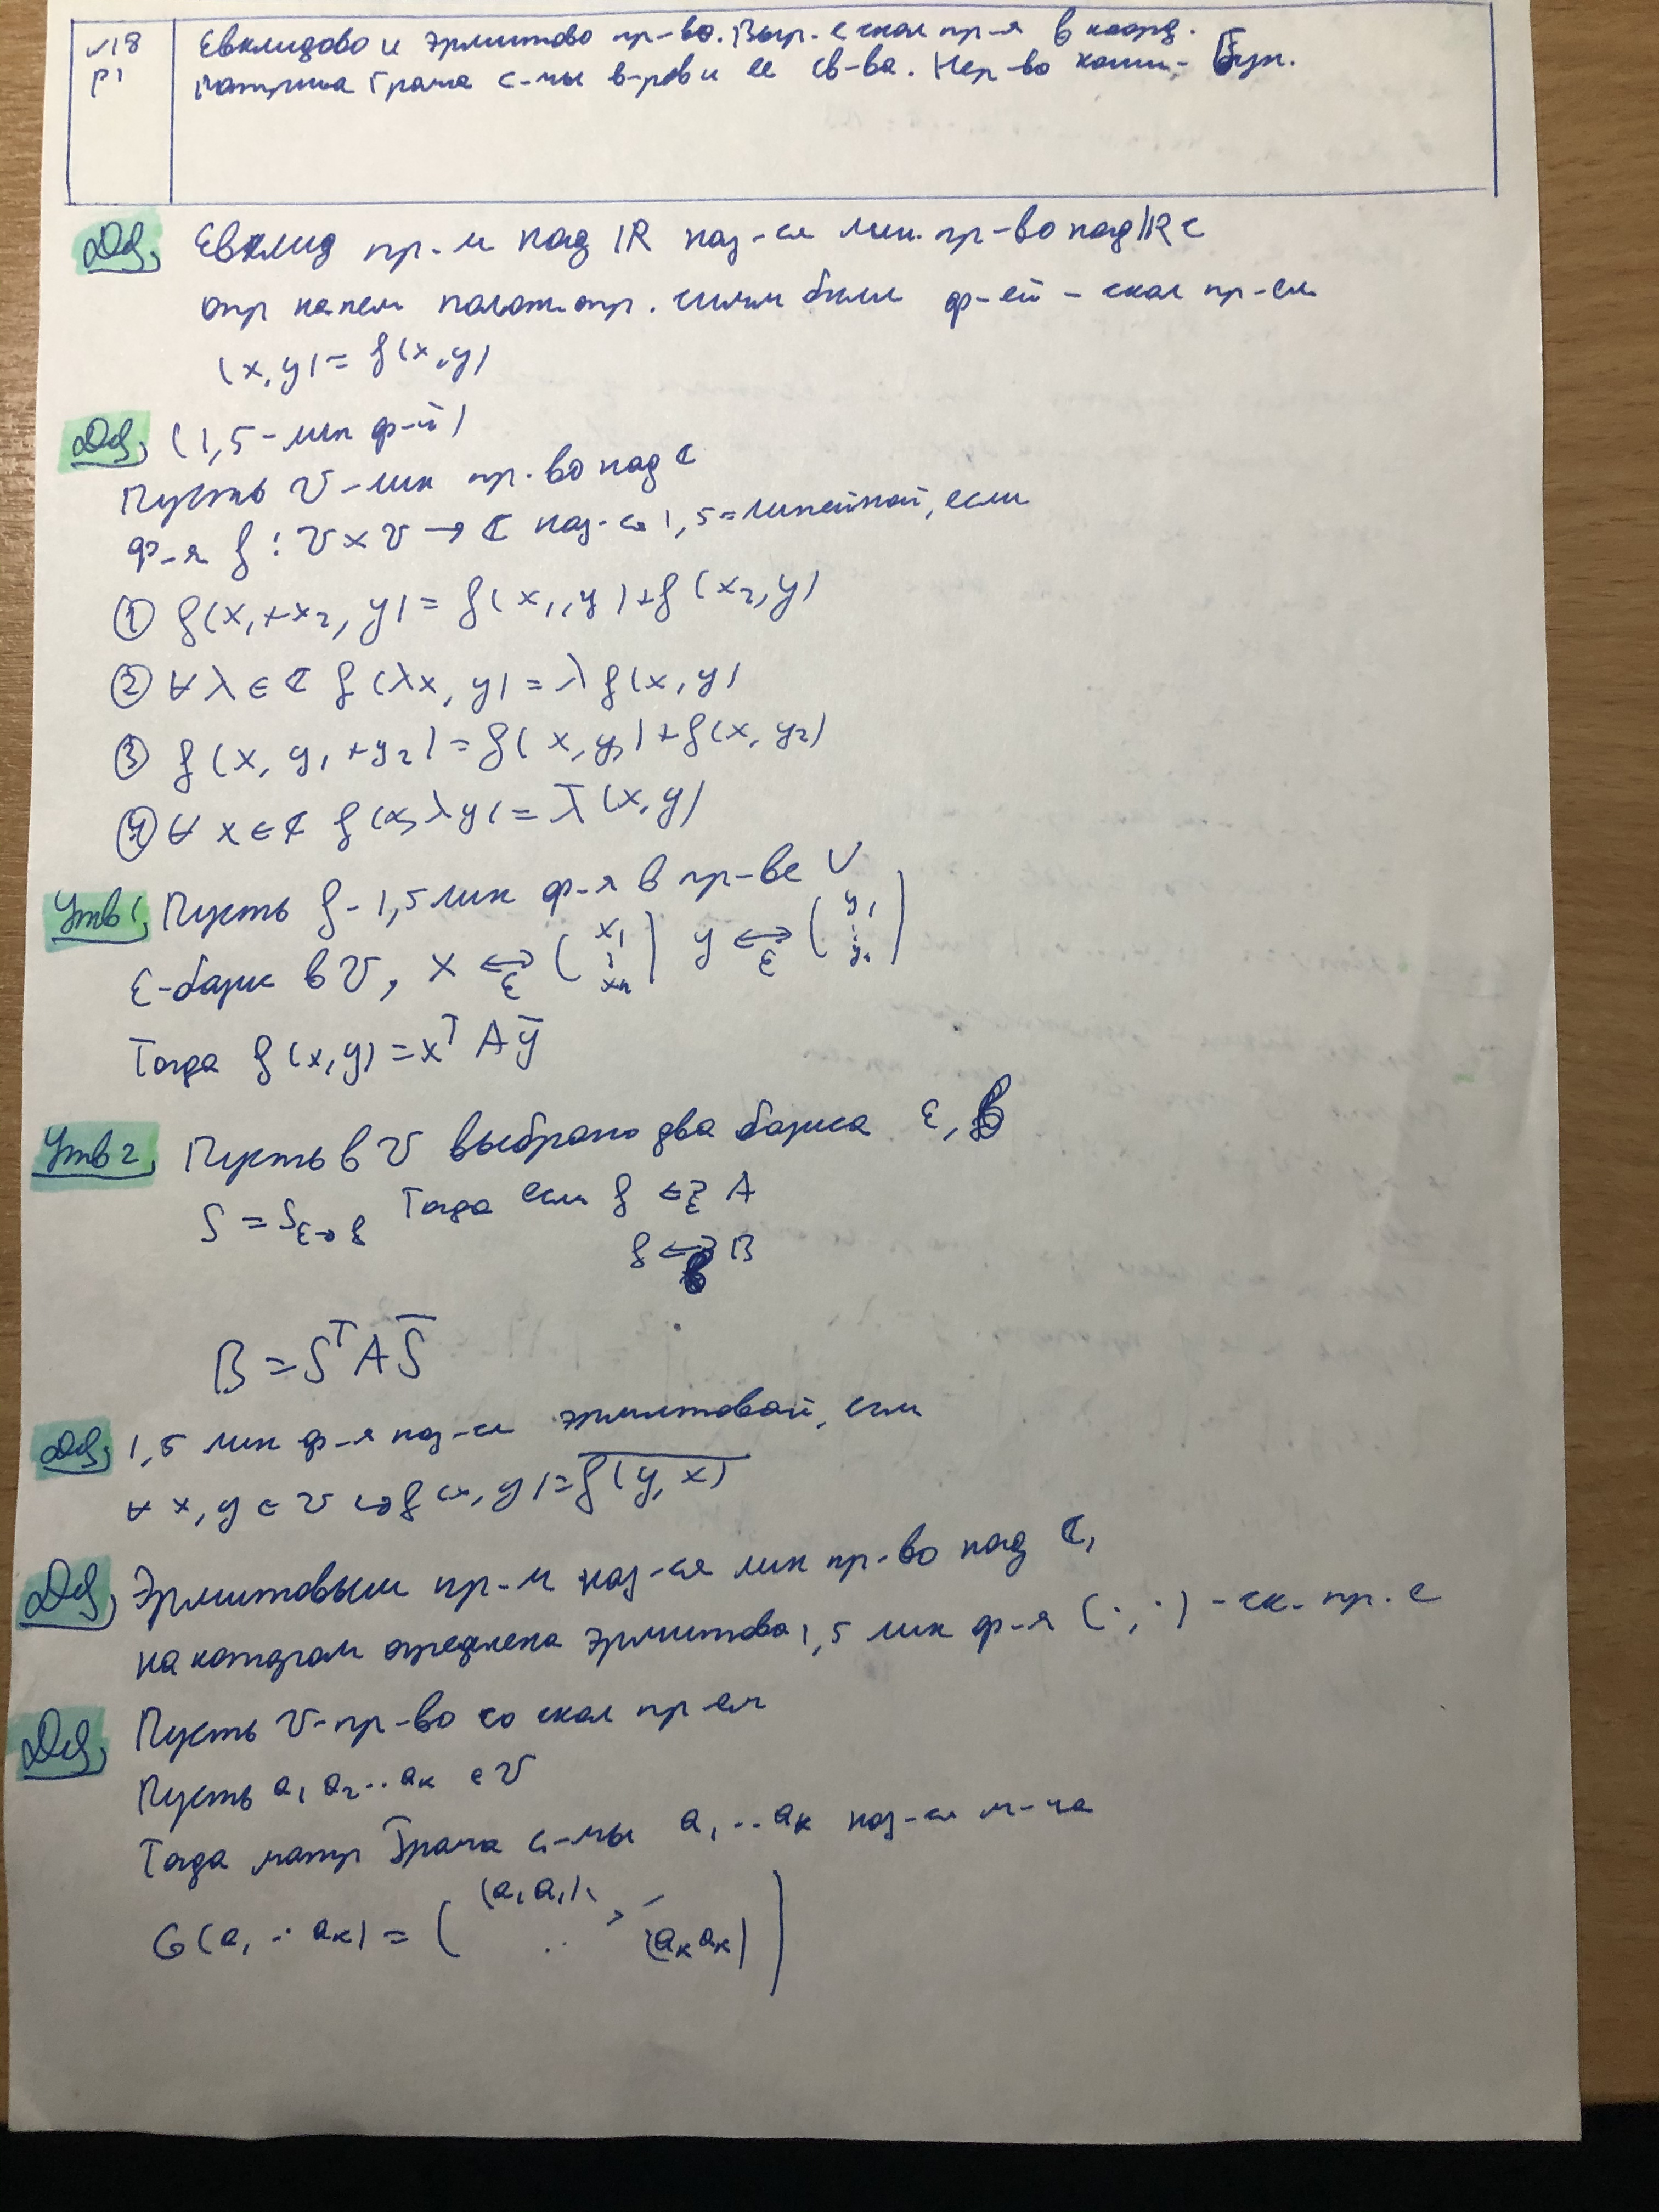 №18
р1
Евклидово и эрмитово пр-во. Выр-е скал пр-я в коорд.
Матрица Грама с-мы в-ров и ее св-ва. Нер-во Коши- Бун.
Def, Евклид пр-м над ℝ наз-ся лин. пр-во над ℝ с
опр на нем полож опр. симм билин ф-ей - скал пр-ем
(x, y) = f(x, y)
Def, (1,5-лин ф-й)
Пусть V-лин пр-во над ℂ
Ф-я f : V × V → ℂ наз-ся 1,5-линейной, если
① f(x₁+x₂, y) = f(x₁, y) + f(x₂, y)
② ∀ λ ∈ ℂ f(λx, y) = λ f(x, y)
③ f(x, y₁+y₂) = f(x, y₁) + f(x, y₂)
④ ∀ x ∈ ℂ f(x, λy) = λ̅ (x, y)
Утв 1, Пусть f - 1,5 лин ф-я в пр-ве V
ε-базис в V, x ⟷_ε (x₁ ⋮ xₙ) y ⟷_ε (y₁ ⋮ yₙ)
Тогда f(x, y) = xᵀ A y̅
Утв 2, Пусть в V выбрано два базиса ε, f
S = S_ε→f Тогда если f ⟷_ε A
f ⟷_f B
B = Sᵀ A S̅
Def, 1,5 лин ф-я наз-ся эрмитовой, если
∀ x, y ∈ V ↪ f(x, y) = \overline{f(y, x)}
Def, Эрмитовым пр-м наз-ся лин пр-во над ℂ,
на котором определена эрмитова 1,5 лин ф-я (·, ·) - ск. пр. е
Def, Пусть V-пр-во со скал пр ем
Пусть a₁ a₂ .. aₖ ∈ V
Тогда матр Грама с-мы a₁ .. aₖ наз-ся м-ца
G(a₁ .. aₖ) = ( (a₁ a₁) .. (aₖ aₖ) )